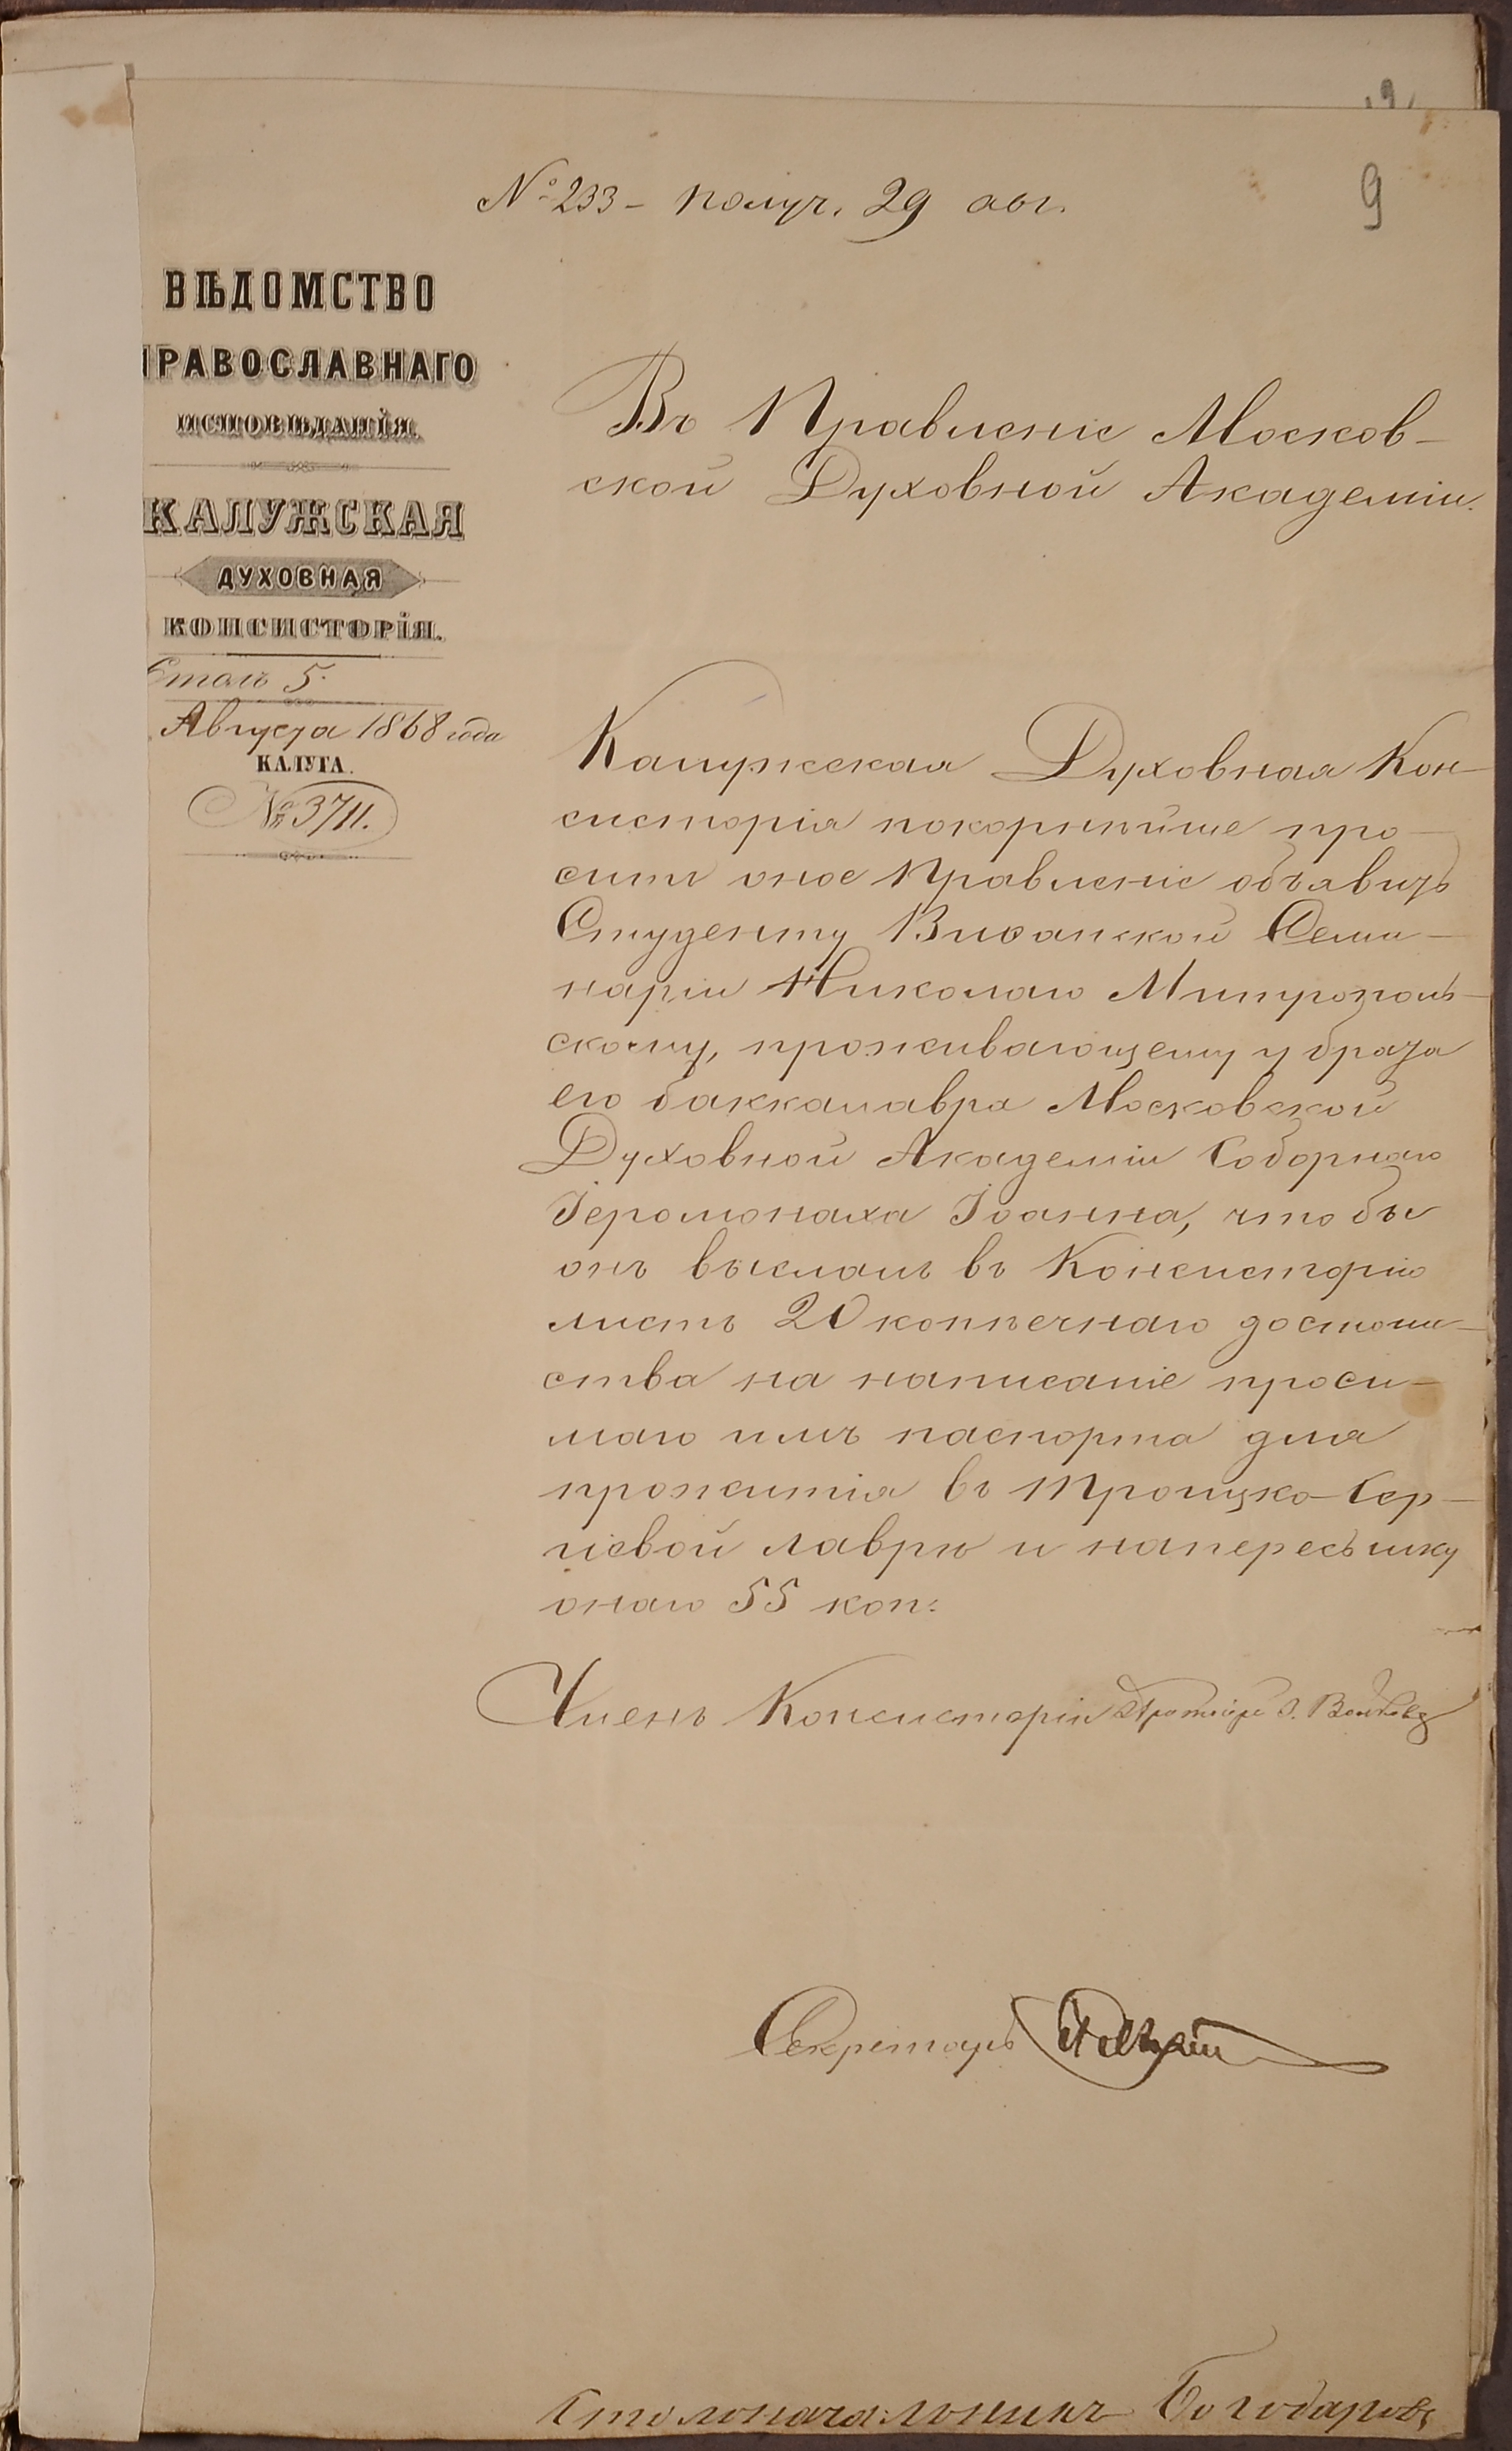 № 233 – получ. 29 авг.
9
ВѢДОМСТВО
ПРАВОСЛАВНАГО
ИСПОВѢДАНІЯ.
КАЛУЖСКАЯ
ДУХОВНАЯ
КОНСИСТОРІЯ.
Столъ 5.
Августа 1868 года
КАЛУГА.
№ 3711.
Въ Правленіе Москов-
ской Духовной Академіи.
Калужская Духовная Кон-
систорія покорнѣйше про-
ситъ оное Правленіе объявить
Студенту Виѳанской Семи-
наріи Николаю Митрополь-
скому, проживающему у брата
его баккалавра Московской
Духовной Академіи Соборнаго
Іеромонаха Іоанна, чтобы
онъ выслалъ въ Консисторію
листъ 20 копѣечнаго достоин-
ства на написаніе проси-
маго имъ паспорта для
прожитія въ Троицко-Сер-
гіевой лаврѣ и на пересылку
онаго 55 коп.
Членъ Консисторіи Протоіерей
Секретарь
Столоначальникъ Богодаровъ